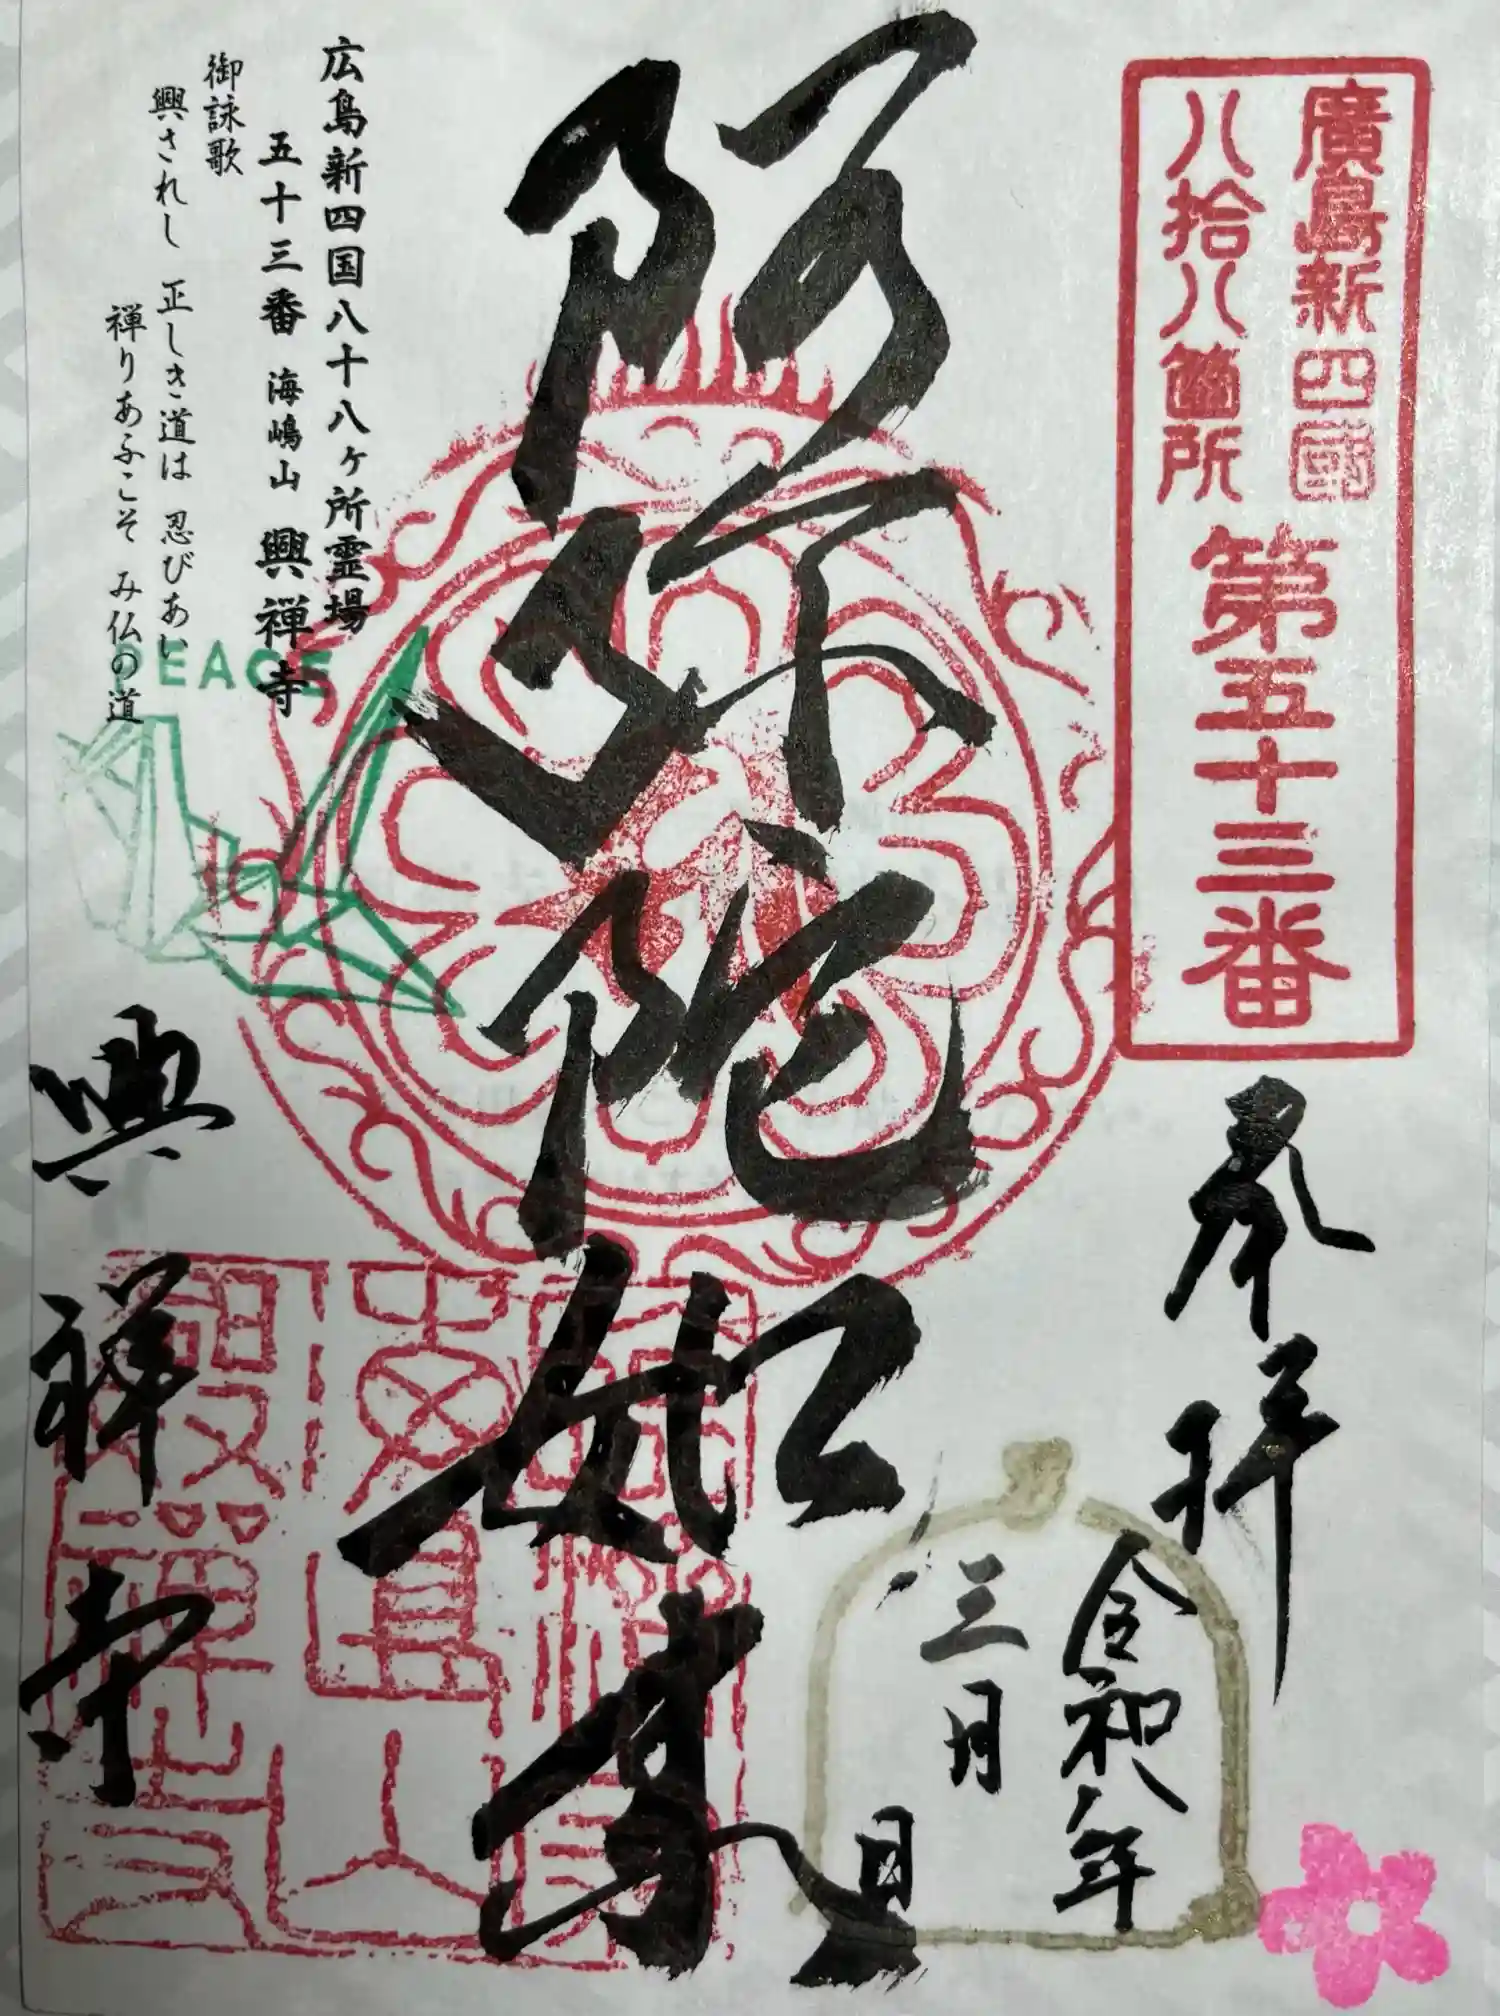 廣島新四國
八拾八箇所
第五十三番
奉拝
令和八年
三月
日
阿弥陀如来
広島新四国八十八ヶ所霊場
五十三番 海嶋山 興禅寺
御詠歌
興されし 正しき道は 忍びあい
禅りあふこそ み仏の道
PEACE
興禅寺